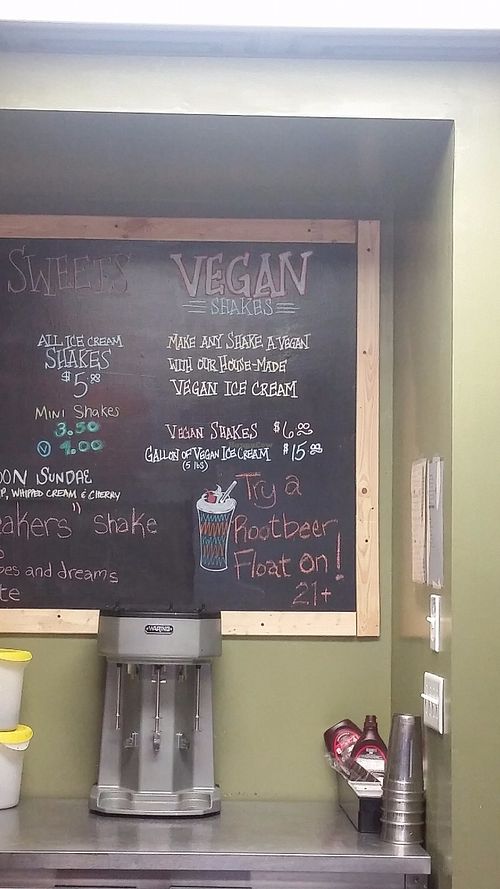 SWEETS
ALL ICE CREAM
SHAKES
$5.00
MINI SHAKES
3.50
V 4.00
OON SUNDAE
P, WHIPPED CREAM & CHERRY
eakers" shake
pes and dreams
te
VEGAN
SHAKES
MAKE ANY SHAKE A VEGAN
WITH OUR HOUSE-MADE
VEGAN ICE CREAM
VEGAN SHAKES $6.00
GALLON OF VEGAN ICE CREAM $15.00
(5 lbs)
Try a
Rootbeer
Float on!
21+
WARING